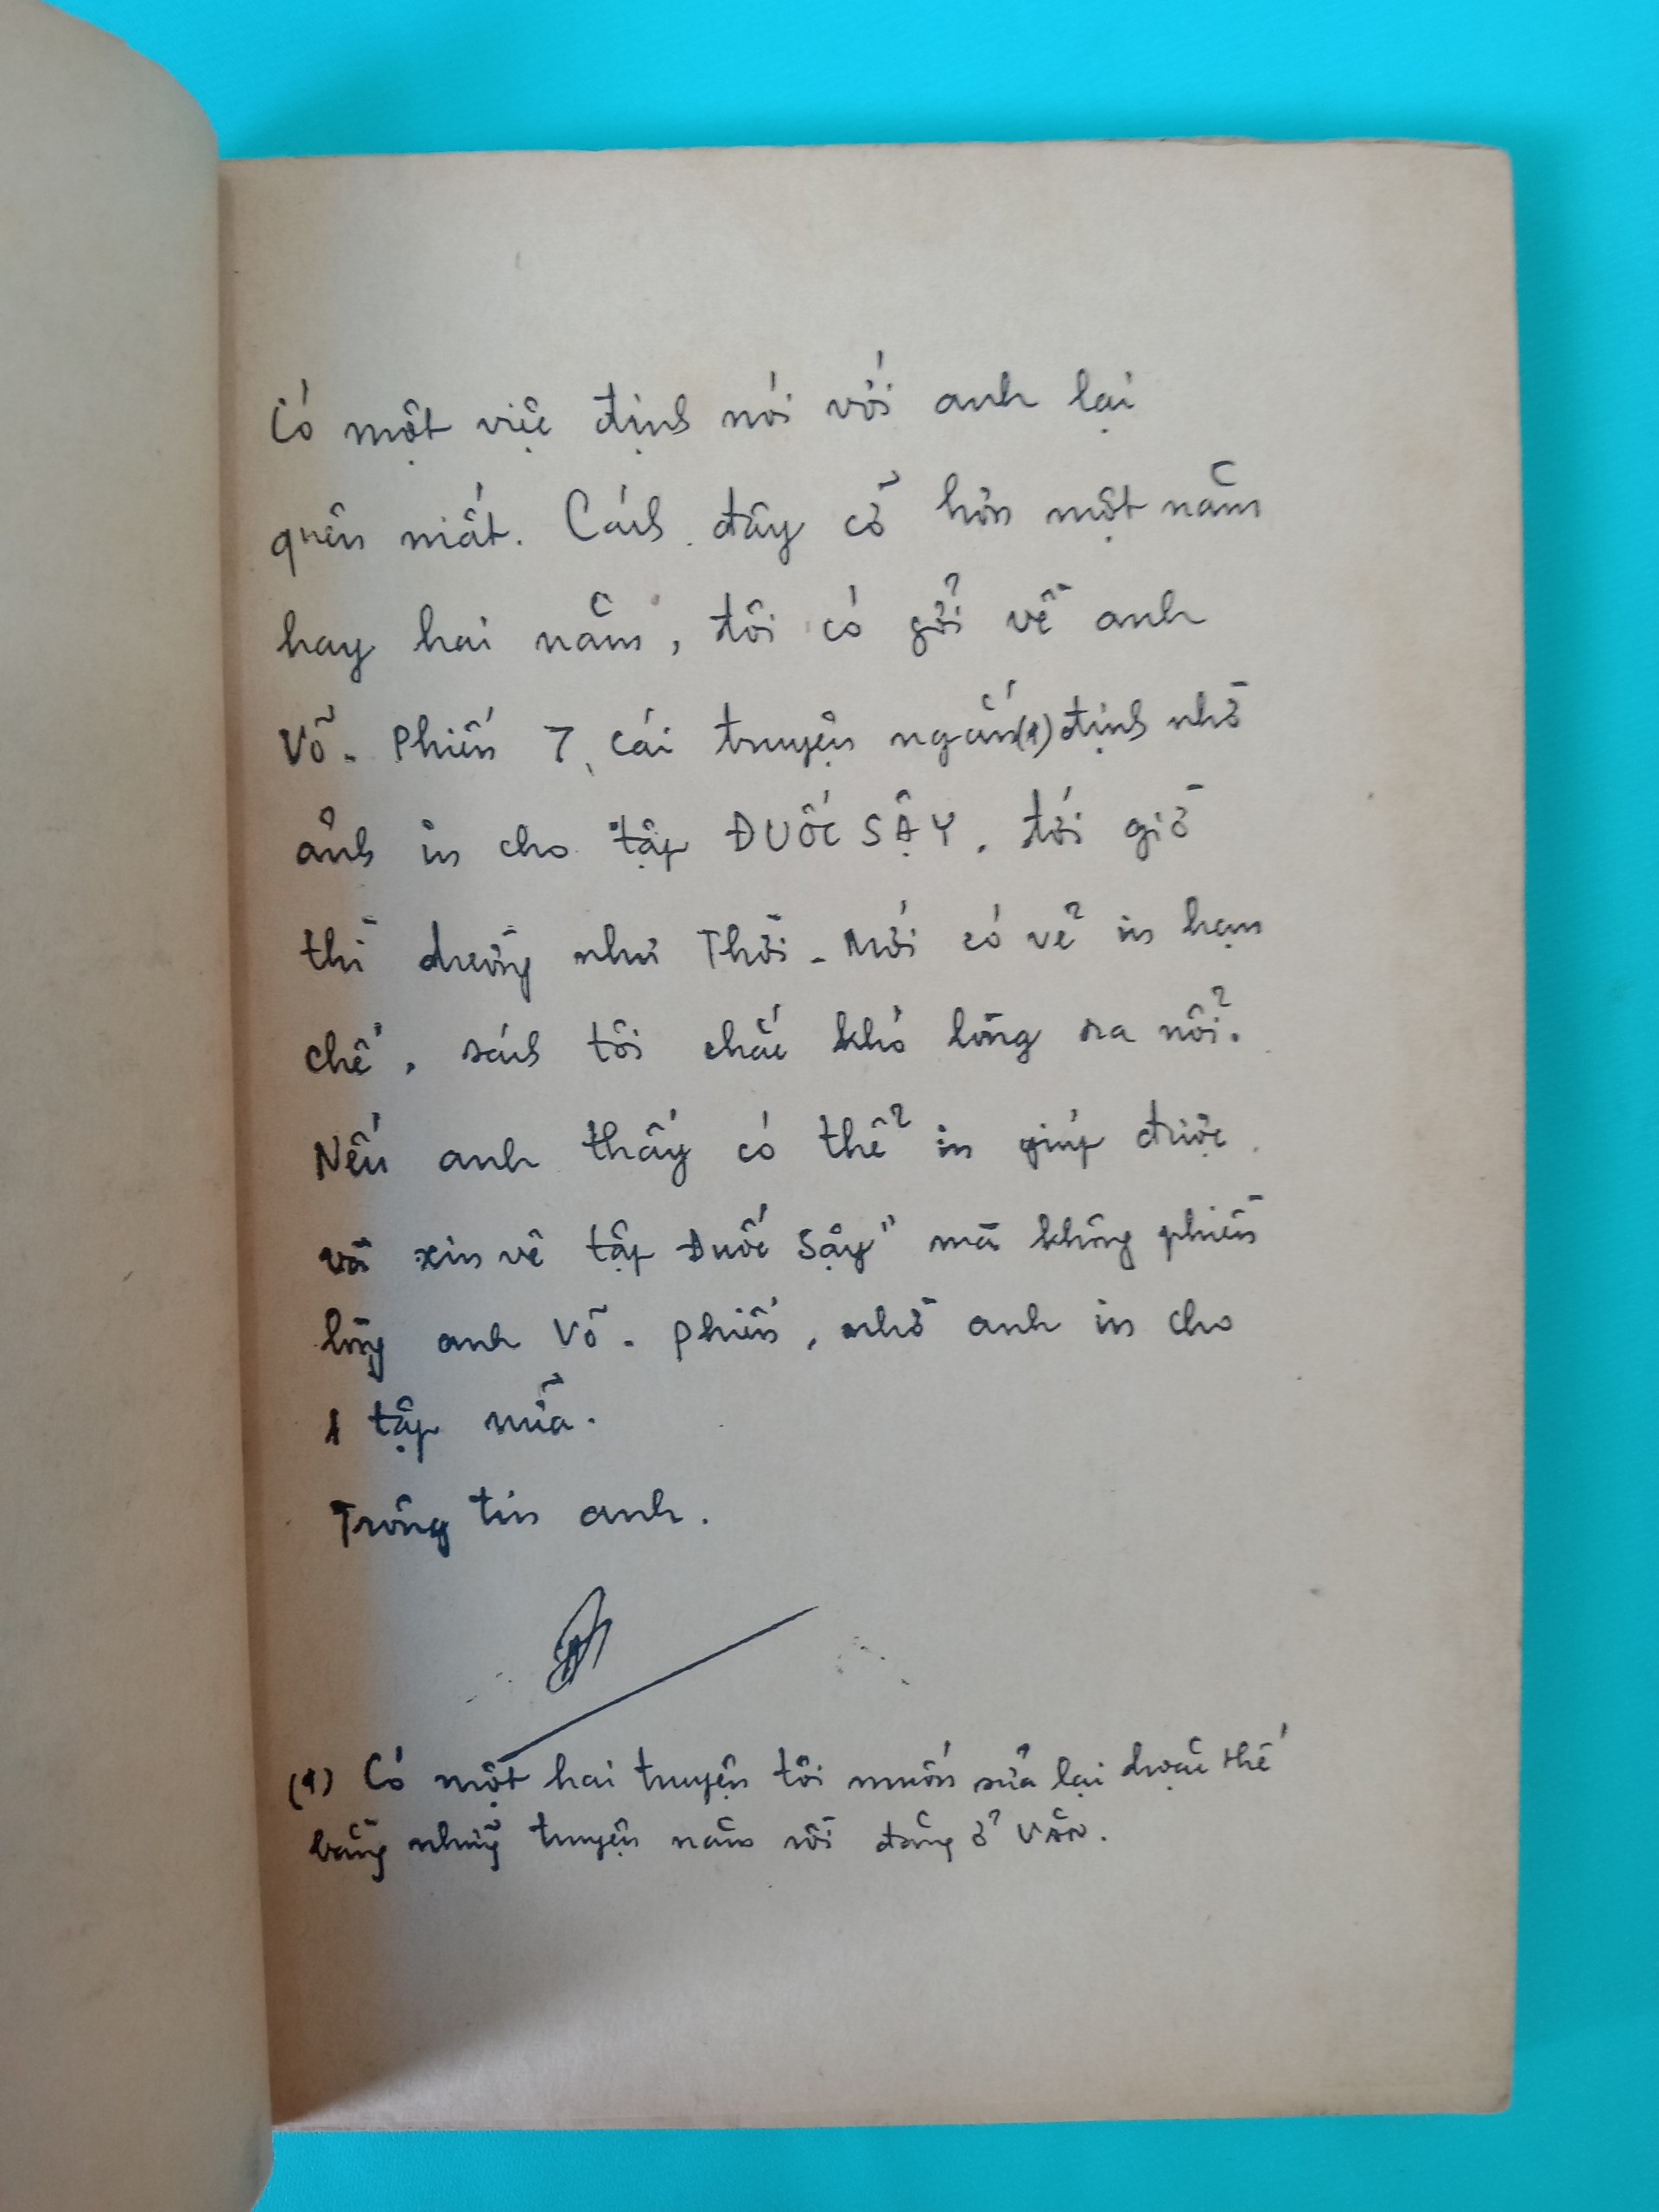 Có một việc định nói với anh lại
quên mất. Cách đây cỡ hơn một năm
hay hai năm, tôi có gởi về anh
Võ-Phiến 7 cái truyện ngắn(1) định nhờ
ảnh in cho tập ĐUỐC SẬY, tới giờ
thì dường như Thời-Mới có vẻ in hạn
chế, sách tôi chắc khó lòng ra nổi.
Nếu anh thấy có thể in giúp được
và xin về tập Đuốc Sậy" mà không phiền
lòng anh Võ-Phiến, nhờ anh in cho
1 tập nữa.
Trông tin anh.
(1) Có một hai truyện tôi muốn sửa lại hoặc thế
bằng những truyện năm rồi đăng ở VĂN.